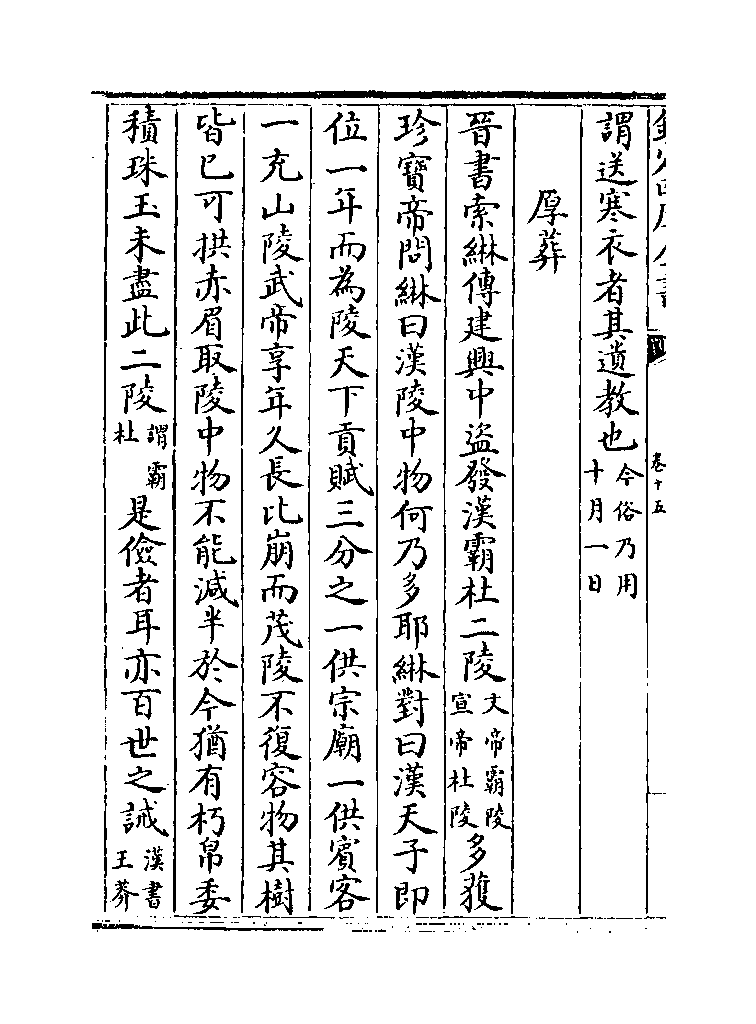 卷十五
謂送寒衣者其遺教也今俗乃用十月一日
厚葬
晉書索綝傳建興中盜發漢霸杜二陵文帝霸陵宣帝杜陵多獲
珍寶帝問綝曰漢陵中物何乃多耶綝對曰漢天子即
位一年而為陵天下貢賦三分之一供宗廟一供賓客
一充山陵武帝享年久長比崩而茂陵不復容物其樹
皆已可拱赤眉取陵中物不能減半於今猶有朽帛委
積珠玉未盡此二陵謂霸杜是儉者耳亦百世之誡漢書王莽